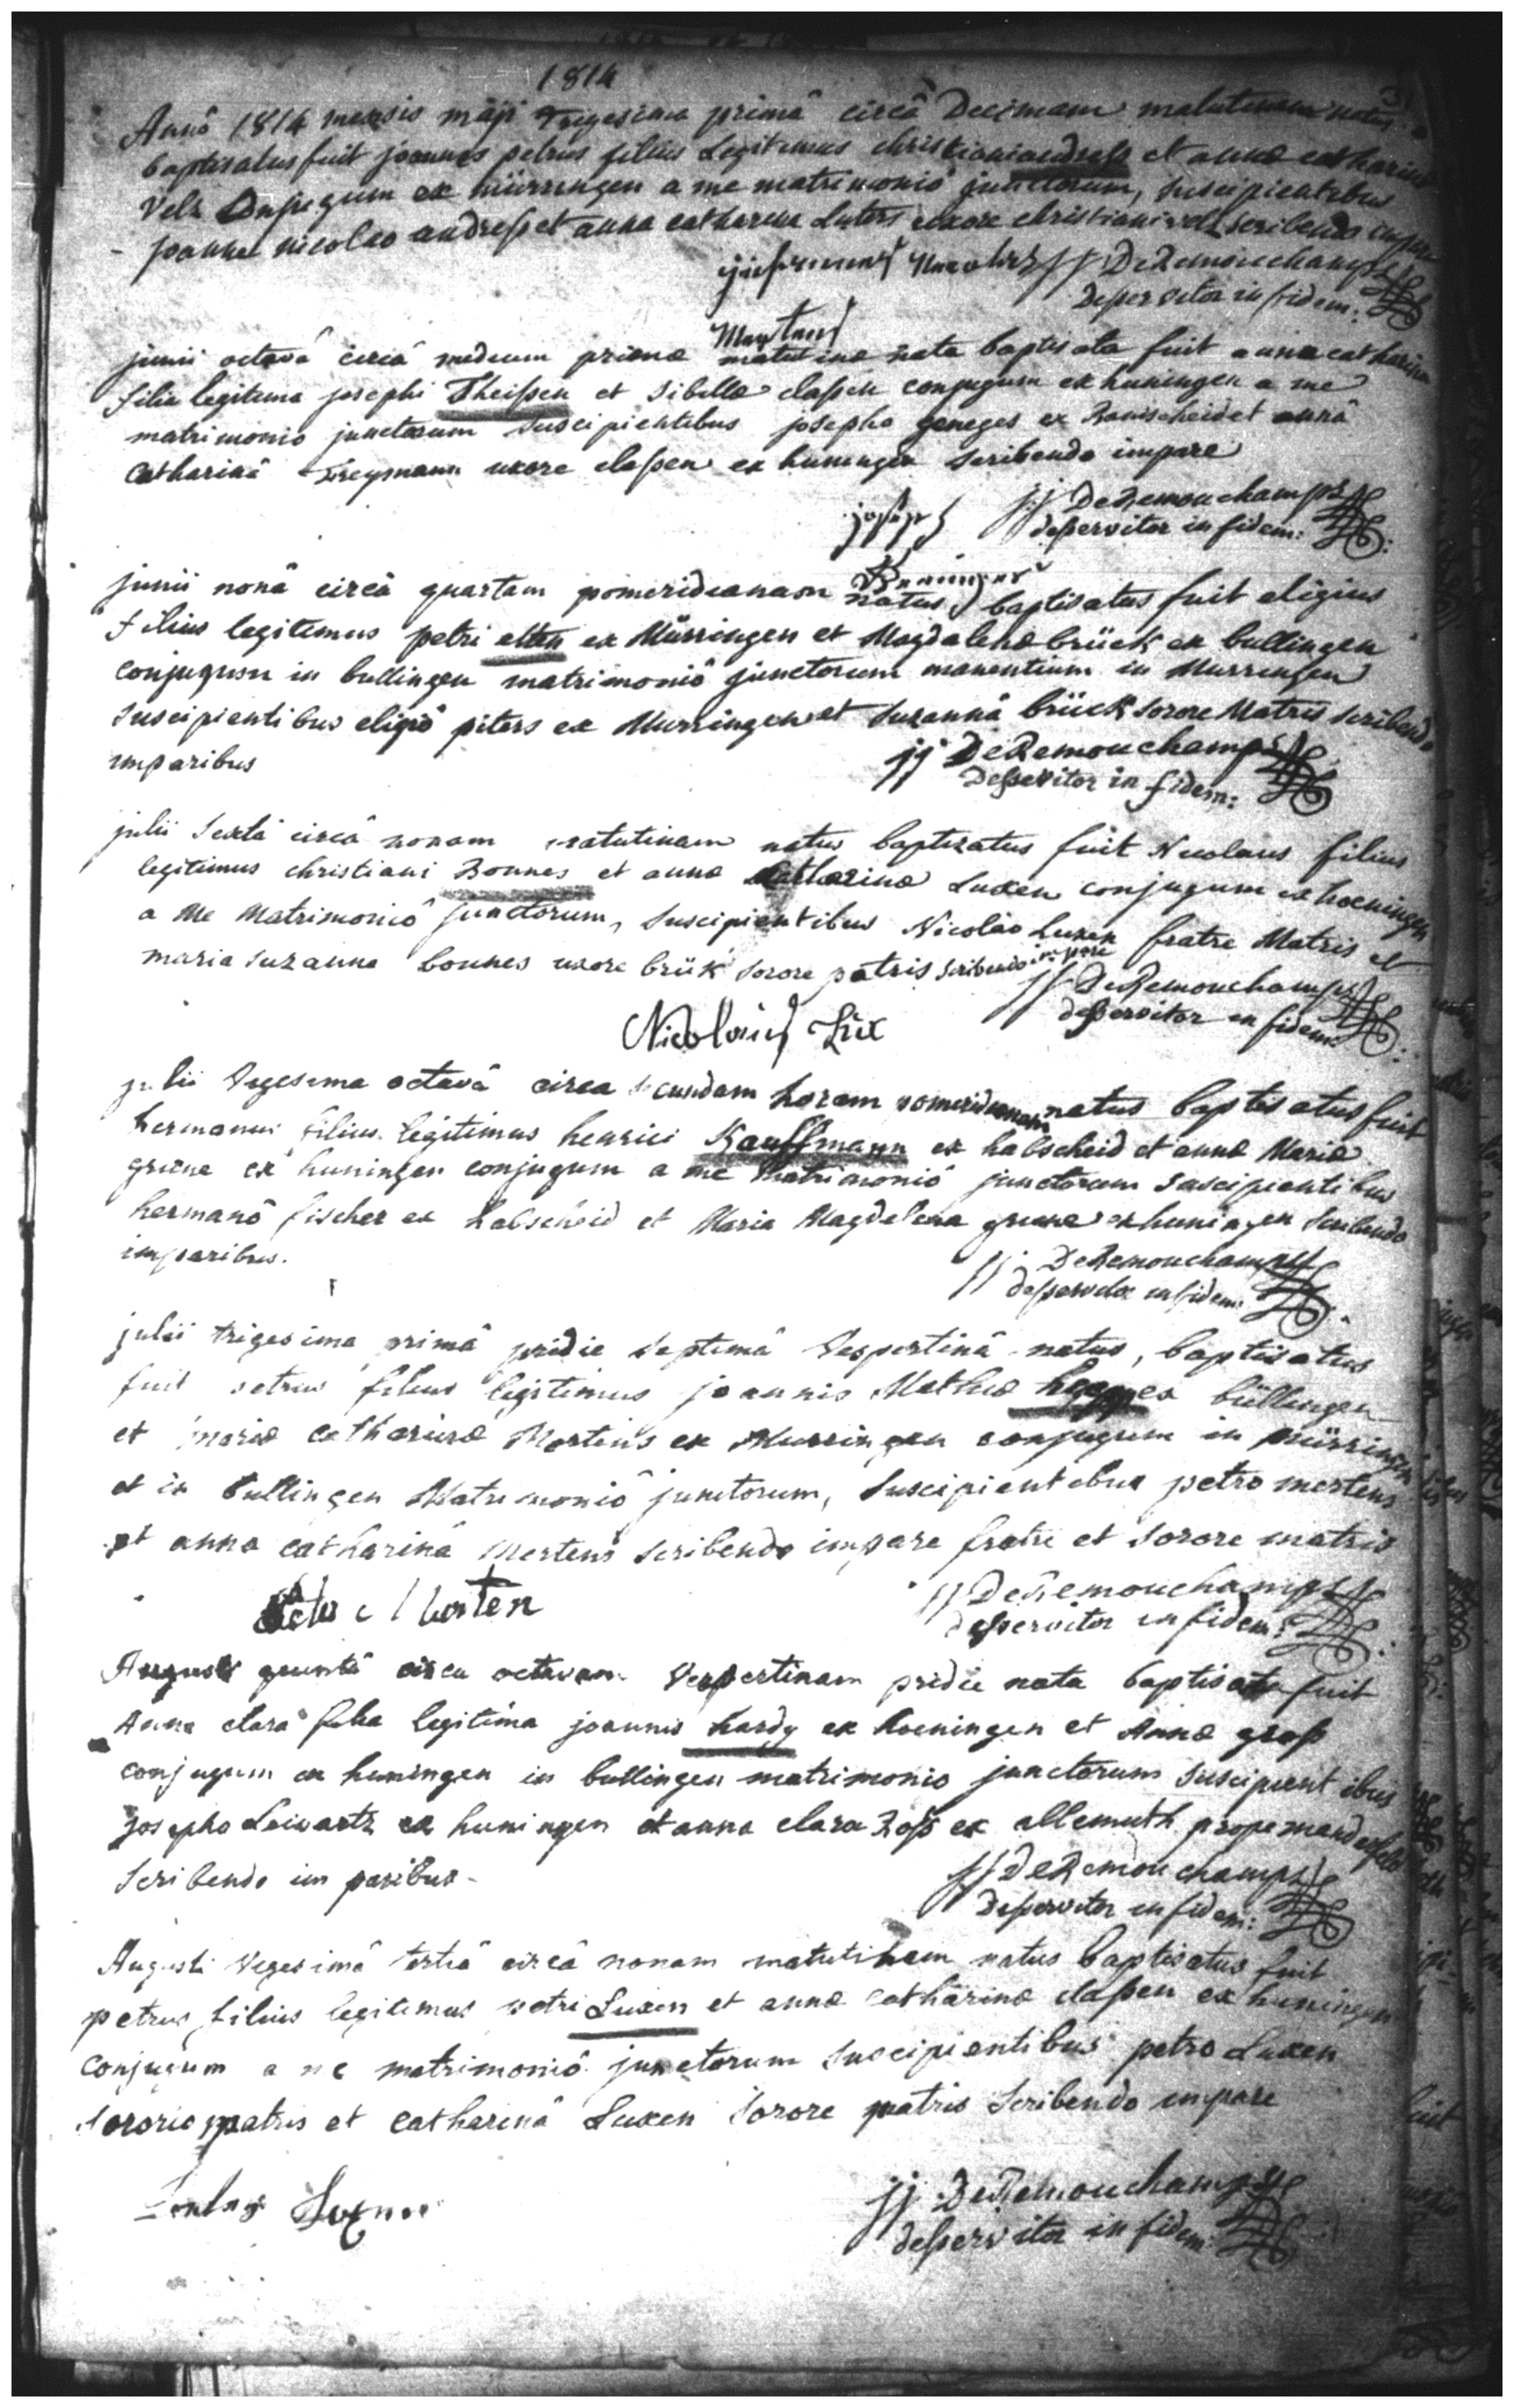 1814
31
Annô 1814 mensis maji Trigesima primâ circâ Decimam matutinam natus
baptisatus fuit joannes petrus filius Legitimus christiani andreß et annæ catharinæ
Velz Conjugum ex mürringen a me matrimoniô junctorum, suscipientibus
joanne nicolao andreß et anna catharina Luters uxore christiani velz scribendo impare
jj DeRemouchamps
deßervitor in fidem:
junii octavâ circâ mediam primæ matutinæ nata baptisata fuit anna catharina
filia legitima josephi Theißen et Sibillæ claßen conjugum ex huningen a me
matrimonio junctorum suscipientibus josepho geneges ex Ramscheid et annâ
Catharinâ Freymann uxore claßen ex huningen scribendo impare
joseph jj DeRemouchamps
deßervitor in fidem:
junii nonâ circâ quartam pomeridianam natus baptisatus fuit eligius
filius legitimus petri etten ex Mürringen et Magdalenæ brück ex bullingen
conjugum in bullingen matrimoniô junctorum manentium in Murringen
suscipientibus eligiô piters ex Murringen et suzannâ brück sorore Matris scribendo
imparibus
jj DeRemouchamps
Deßervitor in fidem:
julii Sextâ circâ nonam matutinam natus baptizatus fuit Nicolaus filius
legitimus christiani Bonnes et annæ Catharinæ Luxen conjugum ex hoeningen
a Me Matrimoniô junctorum, Suscipientibus Nicolao Luxen fratre Matris et
maria suzanna bonnes uxore brük sorore patris scribendo impare
jj DeRemouchamps
deßervitor in fidem:
Nicolaus Lux
julii Vigesima octavâ circa secundam horam pomeridianam natus baptisatus fuit
hermannus filius legitimus henrici Kauffmann ex habscheid et annæ Mariæ
greine ex huningen conjugum a me Matrimoniô junctorum suscipientibus
hermanô fischer ex habscheid et Maria Magdalena greine ex huningen scribendo
imparibus.
jj DeRemouchamps
deßervitor in fidem:
julii trigesima primâ pridie Septimâ Vespertinâ natus, baptisatus
fuit petrus filius legitimus joannis Mathiæ ex büllingen
et mariæ Catharinæ Mertens ex Murringen conjugum in mürringen
et in bullingen Matrimoniô junctorum, Suscipientibus petro mertens
et anna catharinâ Mertens scribendo impare fratre et sorore matris
jj DeRemouchamps
deßervitor in fidem:
Augusti quintâ circa octavam Vespertinam pridie nata baptisata fuit
Anna clara filia legitima joannis hardy ex hoeningen et Annæ groß
conjugum ex huningen in bullingen matrimonio junctorum suscipientibus
josepho Leiwartz ex huningen et anna clara Roß ex allemuth prope manderfeld
scribendo im paribus.
jj DeRemouchamps
Deßervitor in fidem:
Augusti Vigesimâ tertiâ circâ nonam matutinam natus baptisatus fuit
petrus filius legitimus petri Luxen et annæ catharinæ claßen ex huningen
conjugum a me matrimoniô junctorum suscipientibus petro Luxen
sororio patris et catharinâ Luxen sorore patris scribendo impare
jj DeRemouchamps
deßervitor in fidem: